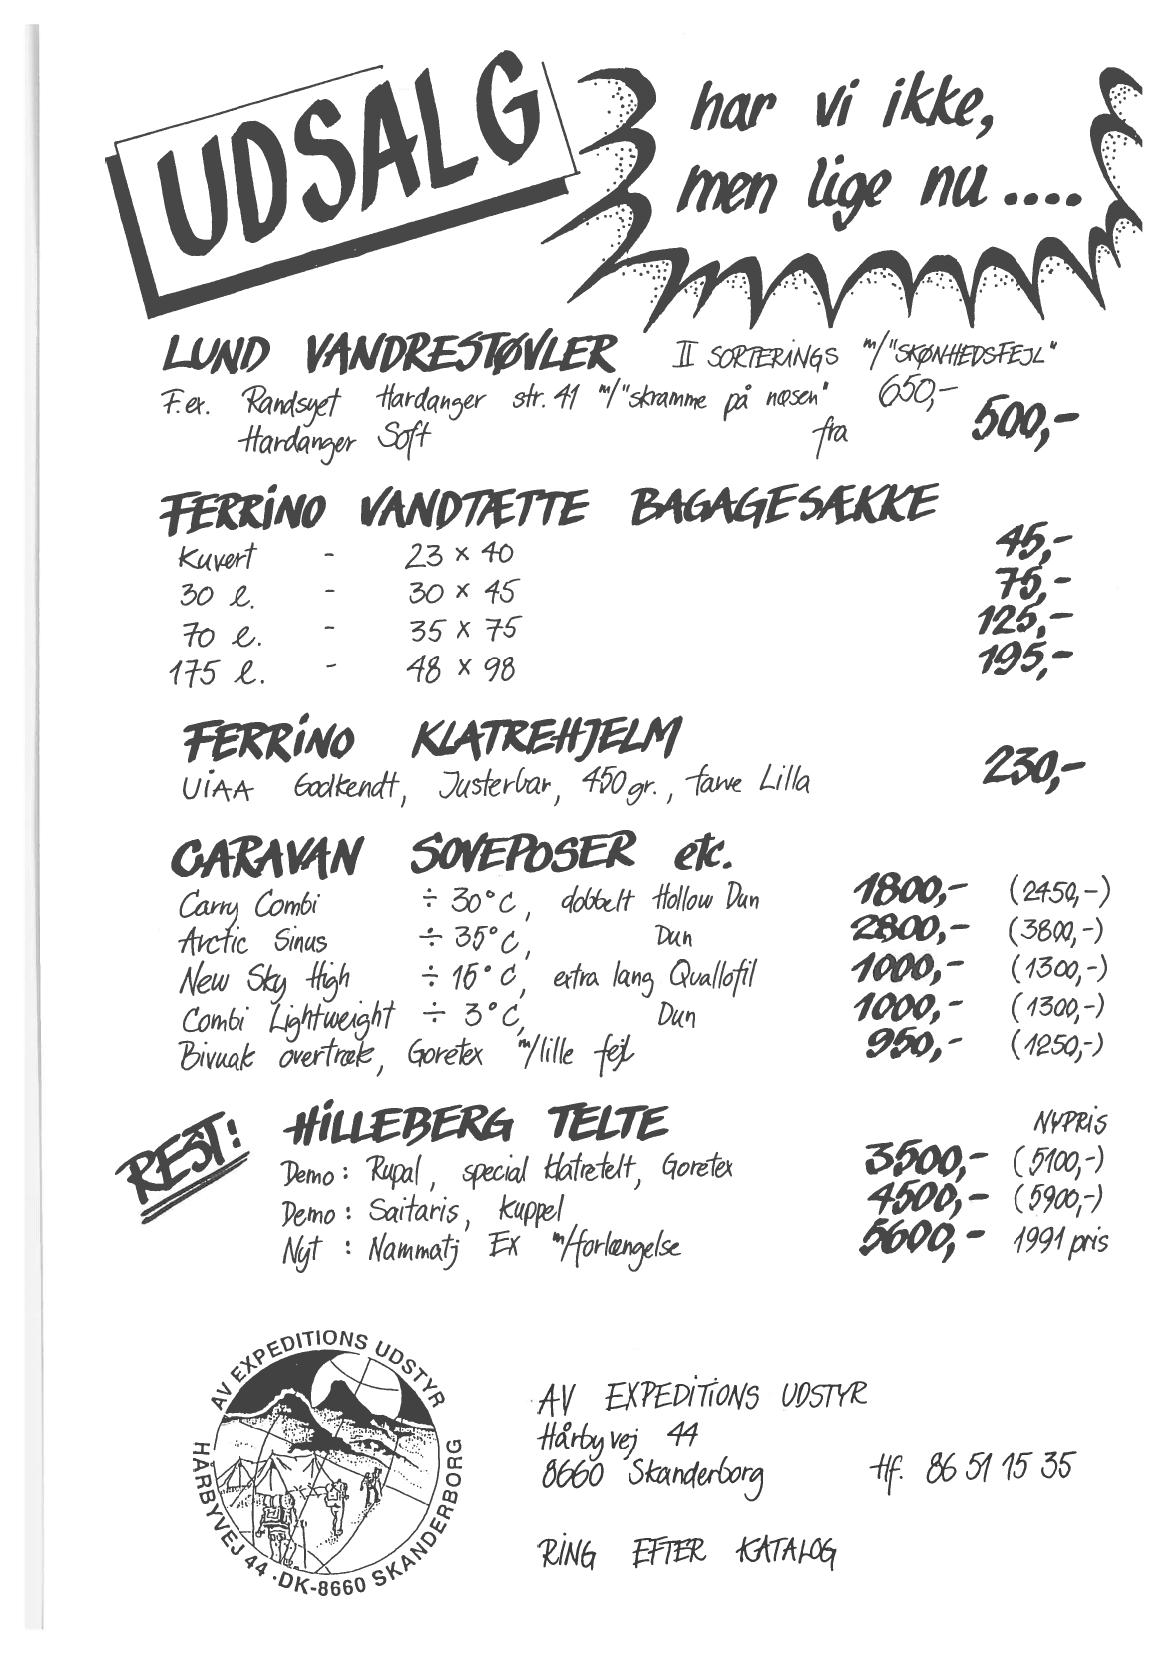 UDSALG har vi ikke,
men lige nu ....
LUND VANDRESTØVLER II SORTERINGS m/"SKØNHEDSFEJL"
F.ex. Randsyet Hardanger str. 41 m/"skramme på næsen" 650,-
Hardanger Soft fra 500,-
FERRINO VANDTÆTTE BAGAGESÆKKE
Kuvert - 23 x 40 45,-
30 l. - 30 x 45 75,-
70 l. - 35 x 75 125,-
175 l. - 48 x 98 195,-
FERRINO KLATREHJELM
UIAA Godkendt, Justerbar, 450 gr., farve Lilla 230,-
CARAVAN SOVEPOSER etc.
Carry Combi ÷ 30°C, dobbelt Hollow Dun 1800,- (2450,-)
Arctic Sinus ÷ 35°C, Dun 2800,- (3800,-)
New Sky High ÷ 15°C, extra lang Quallofil 1000,- (1300,-)
Combi Lightweight ÷ 3°C, Dun 1000,- (1300,-)
Bivuak overtræk, Goretex m/lille fejl 950,- (1250,-)
REST: HILLEBERG TELTE NYPRIS
Demo: Rupal, special klatretelt, Goretex 3500,- (5100,-)
Demo: Saitaris, kuppel 4500,- (5900,-)
Nyt : Nammatj EX m/forlængelse 5600,- 1991 pris
AV EXPEDITIONS UDSTYR
HÅRBYVEJ 44 · DK-8660 SKANDERBORG
AV EXPEDITIONS UDSTYR
Hårbyvej 44
8660 Skanderborg tlf. 86 51 15 35
RING EFTER KATALOG